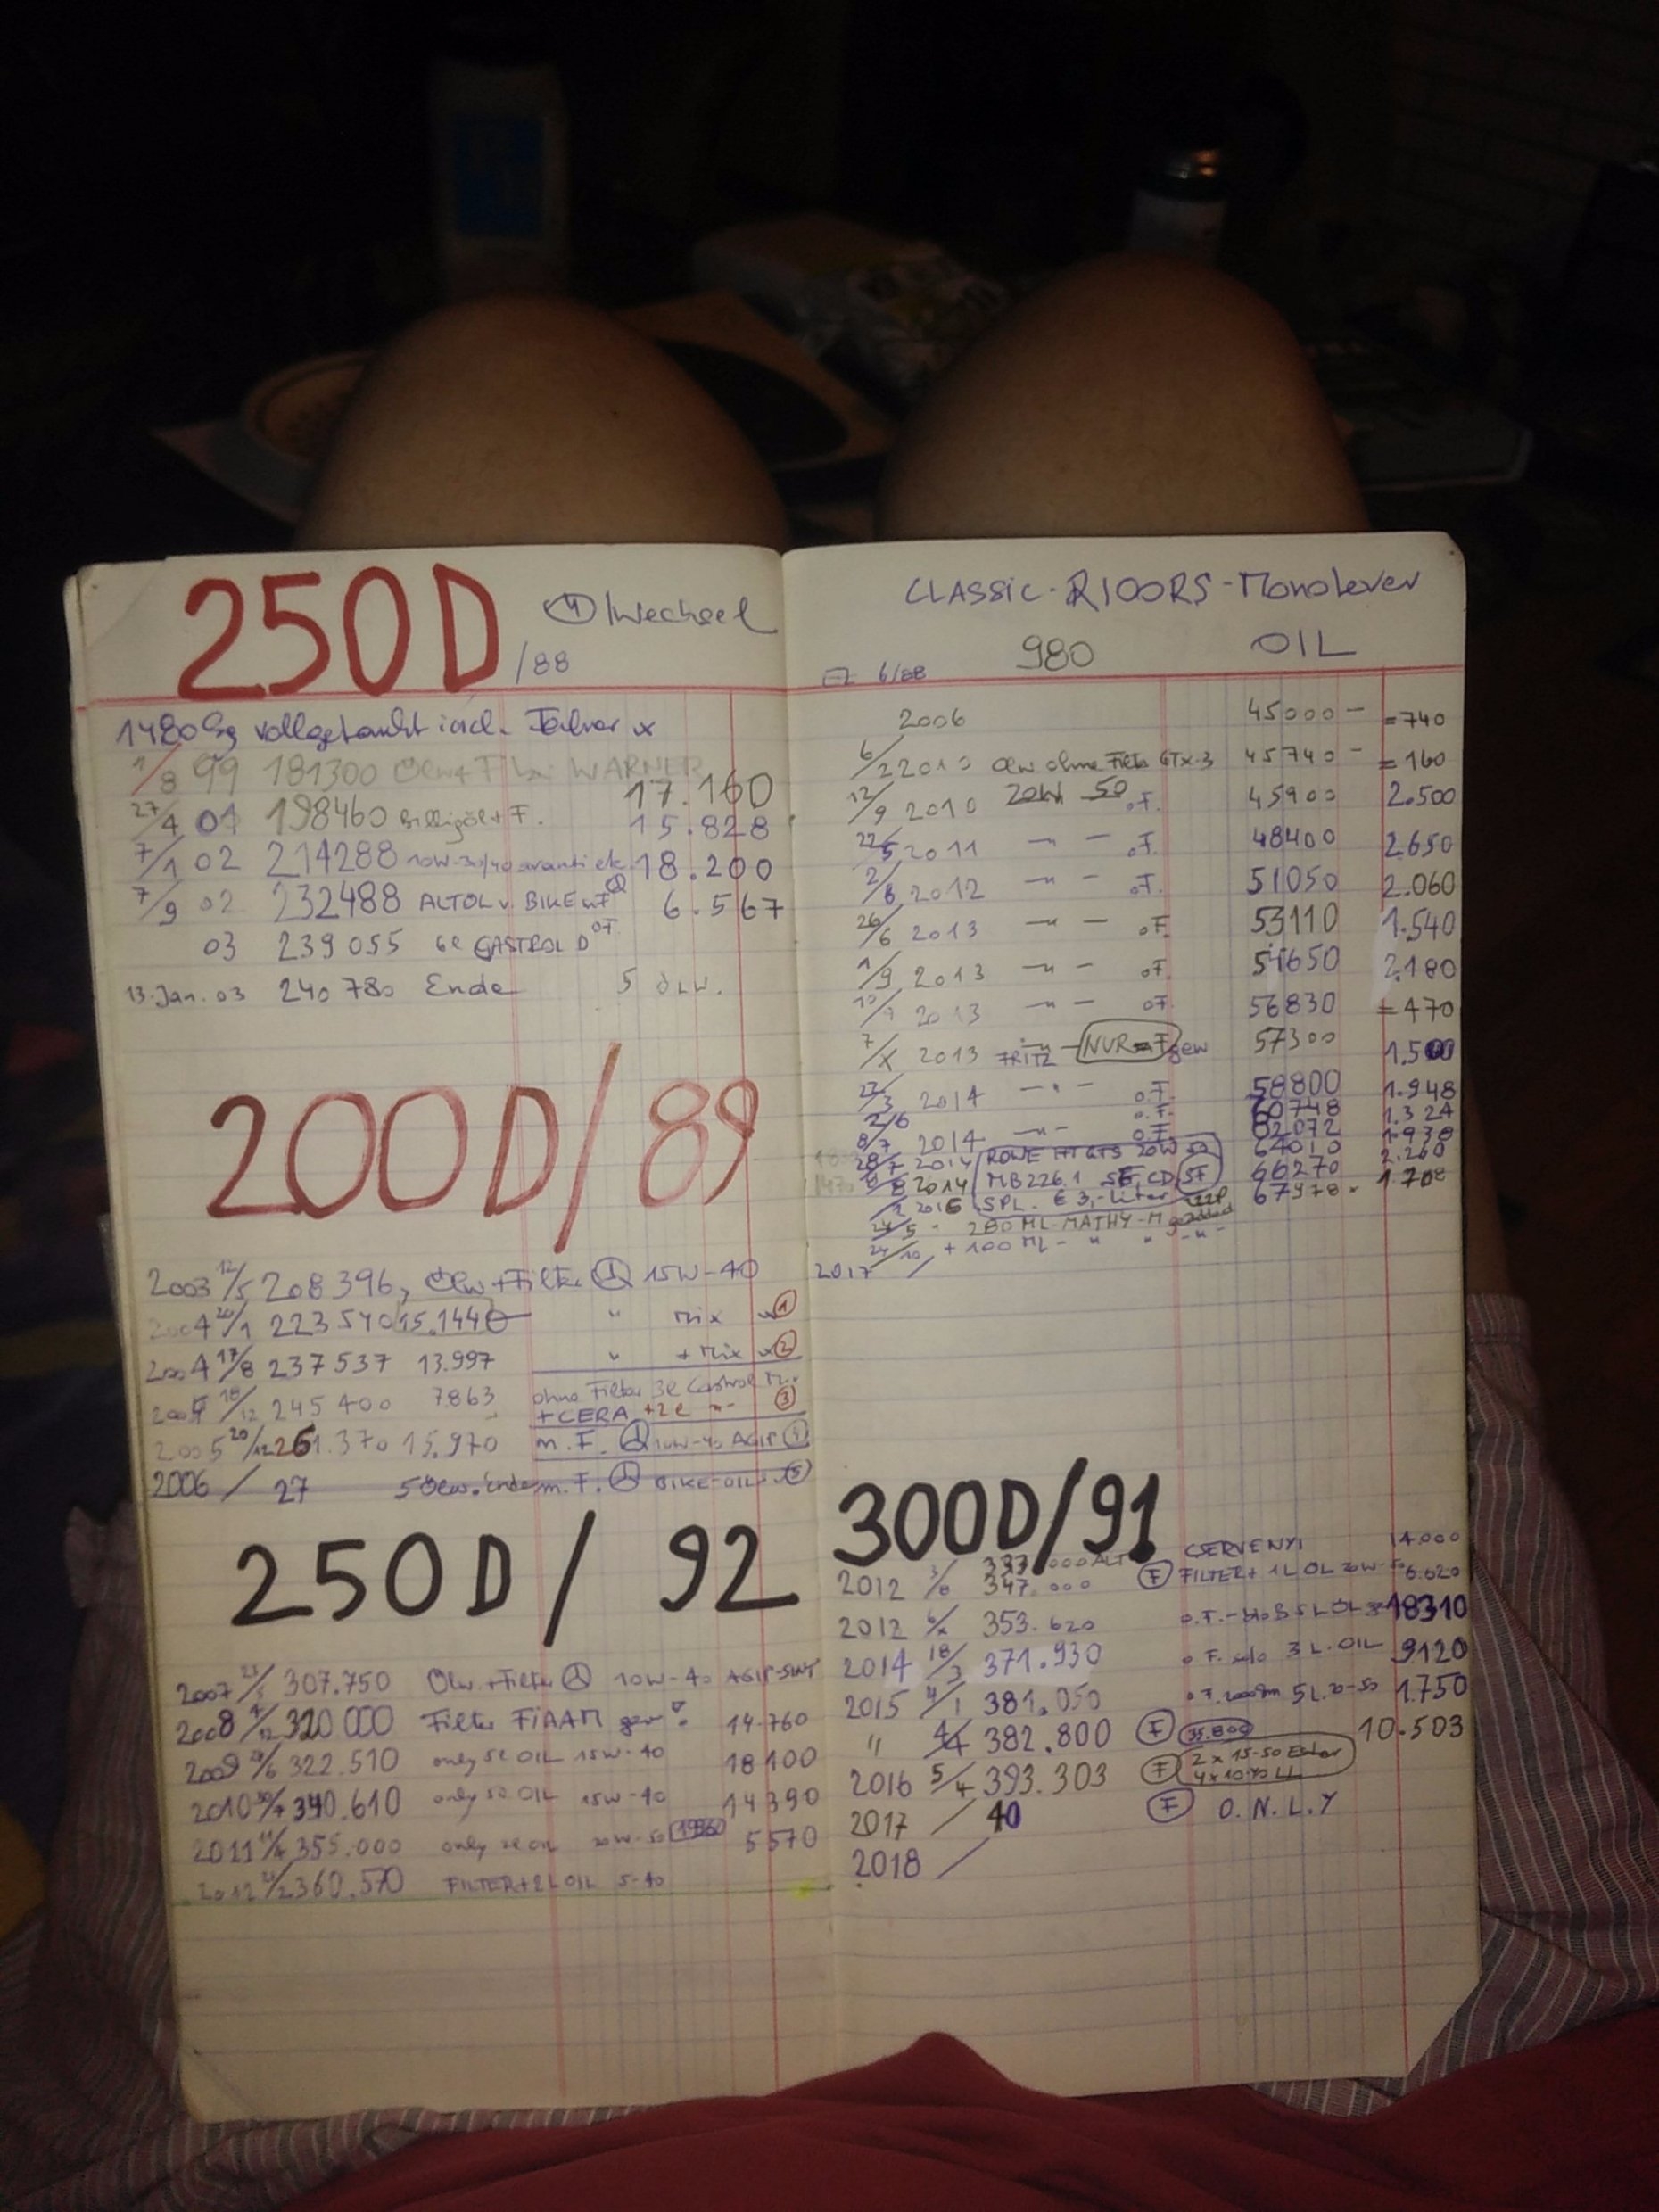 250D /88 Wechsel
vollgetankt incl.
1/8 99 181300 WARNER
17.160
27/4 01 198460 Billigöl + F. 15.828
7/1 02 214288 10W-30/40 18.200
7/9 02 232488 ALTÖL v. BIKE 6.567
03 239055 6l CASTROL D oF.
13. Jan. 03 240780 Ende 5 ÖLW.
200D/89
2003 12/5 208396, Ölw + Filter 15W-40
2004 20/1 223540 15.144 " Mix 1
2004 17/8 237537 13.997 " + Mix 2
18/12 245400 7863 ohne Filter 3l Castrol
+CERA +2l 3
2005 20/12 261.370 15.970 m. F. 10W-40 AGIP 4
2006 / 27 5 Ölw. Ende m. F. BIKE-OIL 5
250D/92
2007 307.750 Ölw. + Filter 10W-40 AGIP
2008 320.000 Filter FIAAM 14.760
2009 322.510 only 5l OIL 15W-40 18100
2010 340.610 only 5l OIL 15W-40 14390
2011 355.000 only 2l OIL 20W-50 5570
2012 360.570 FILTER + 2L OIL 5-40
CLASSIC-R100RS-Monolever
EZ 6/88 980 OIL
2006 45000 - = 740
6/2 2010 Ölw ohne Filter GTX-3 45740 - = 160
12/9 2010 20W 50 o.F. 45900 2.500
22/5 2011 -"- o.F. 48400 2.650
2/8 2012 -"- o.F. 51050 2.060
26/6 2013 -"- o.F. 53110 1.540
1/9 2013 -"- oF. 54650 2.180
10/9 2013 -"- oF. 56830 = 470
7/X 2013 FRITZ -"- NUR F gew 57300 1.500
2014 -"- o.F. 58800 1.948
2/6 o.F. 60748 1.324
8/7 2014 -"- o.F. 62072 1.938
28/7 2014 ROWE 20W 50 64010 2.260
2014 MB226.1 SF, CD, SF 66270 1.708
2016 SPL. € 3,- Liter 67978
24/5 - 200 ML MATHY-M
24/10 + 100 ML - " " - " -
2017 /
300D/91
337.000 ALT CSERVENYI 14.000
2012 3/8 347.000 F FILTER + 1L ÖL 20W-50 6.620
2012 6/X 353.620 o.F. 5L ÖL 18310
2014 18/3 371.930 o F. 3 L. OIL 9120
2015 4/1 381.050 o F. 5L. 20-50 1.750
" 4/4 382.800 F 35.800 10.503
2016 5/4 393.303 F 2 x 15-50
4 x 10-40 LL
2017 / 40 F O.N.L.Y
2018 /